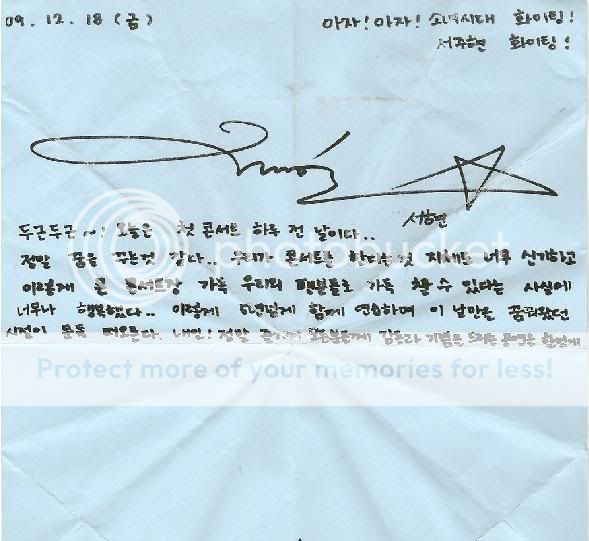 09. 12. 18 (금)
아자! 아자! 소녀시대 화이팅!
서주현 화이팅!
서현
두근두근~! 오늘은 첫 콘서트 하루 전 날이다..
정말 꿈을 꾸는것 같다.. 우리가 콘서트를 한다는 것 자체도 너무 신기하고
이렇게 큰 콘서트장 가득 우리의 팬분들로 가득 찰 수 있다는 사실에
너무나 행복했다.. 이렇게 함께 연습하며 이 날만을 꿈꿔왔던
시절이 문득 떠오른다. 내일! 정말
photobucket
Protect more of your memories for less!